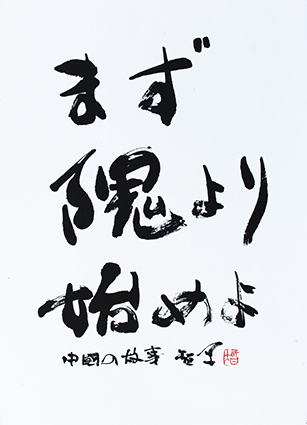 まず
隗より
始めよ
中國の故事